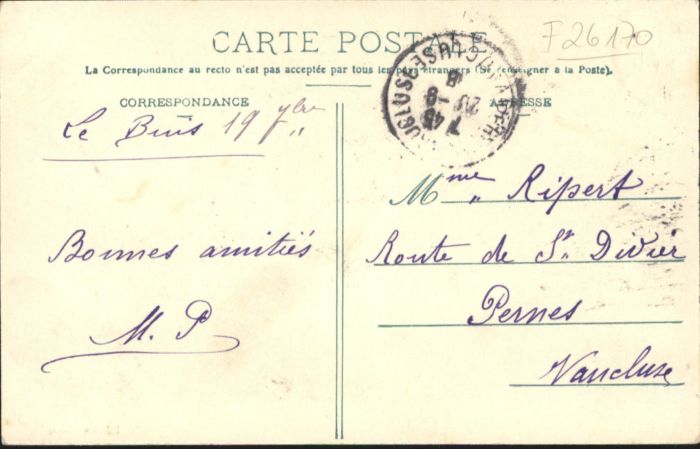 F26170
CARTE POSTALE
La Correspondance au recto n'est pas acceptée par tous les pays étrangers (Se renseigner à la Poste).
CORRESPONDANCE
ADRESSE
Le Buis 19 7bre
Bonnes amitiés
M. P
Mme Ripert
Route de St. Divier
Pernes
Vaucluse